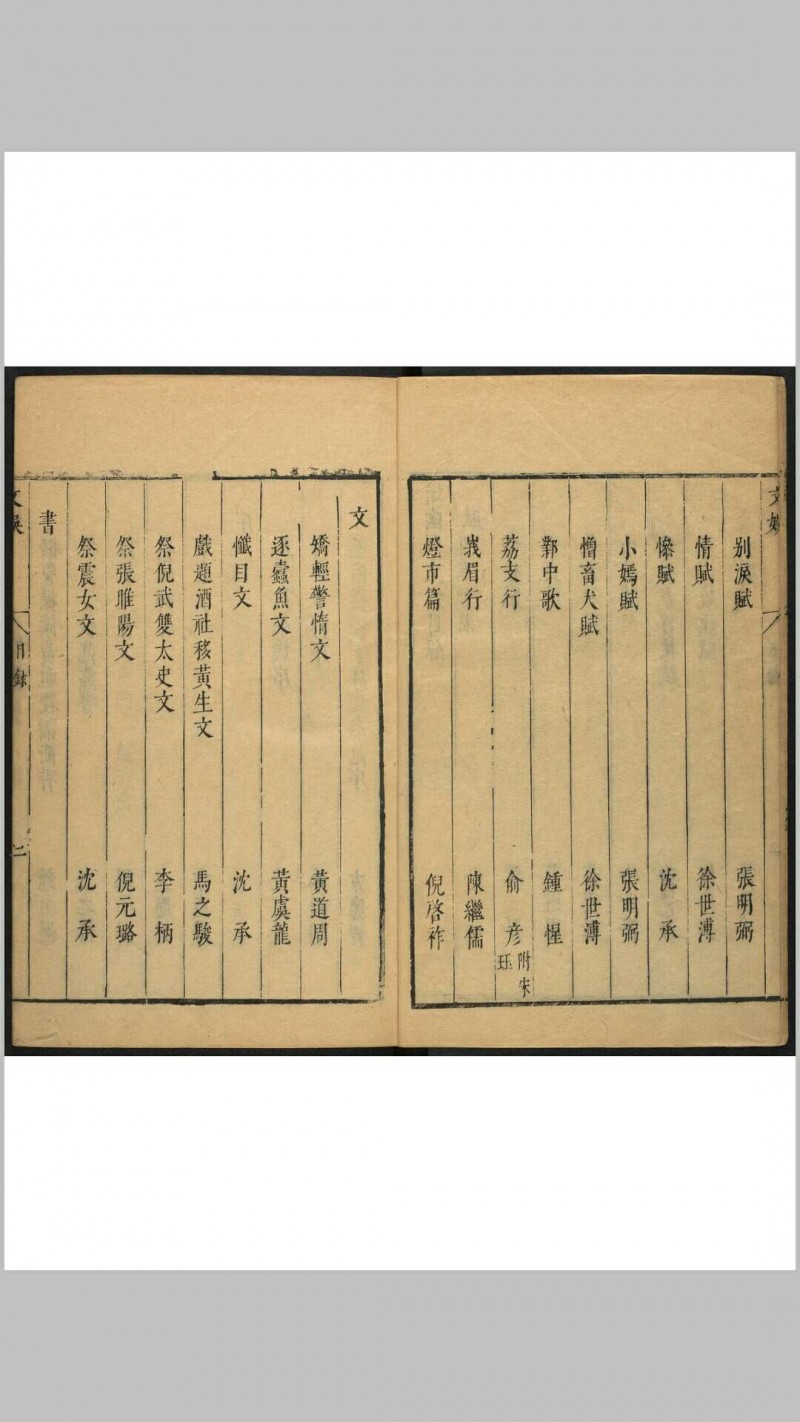 文娛
別淚賦 張明弼
情賦 徐世溥
慘賦 沈承
小嫣賦 張明弼
憎畜犬賦 徐世溥
鄴中歌 鍾惺
荔支行 俞彥 附宋珏
峩眉行 陳繼儒
燈市篇 倪啓祚
文
矯輕警惰文 黃道周
逐蠹魚文 黃虞龍
懺目文 沈承
戲題酒社移黃生文 馬之駿
祭倪武雙太史文 李柄
祭張睢陽文 倪元璐
祭震女文 沈承
書
文娛 目録 二